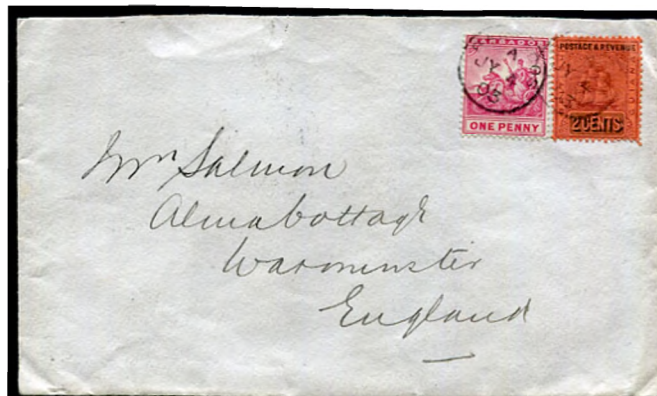 BARBADOS
ONE PENNY
POSTAGE & REVENUE
2 CENTS
Mrs Salmon
Alma Cottage
Warminster
England